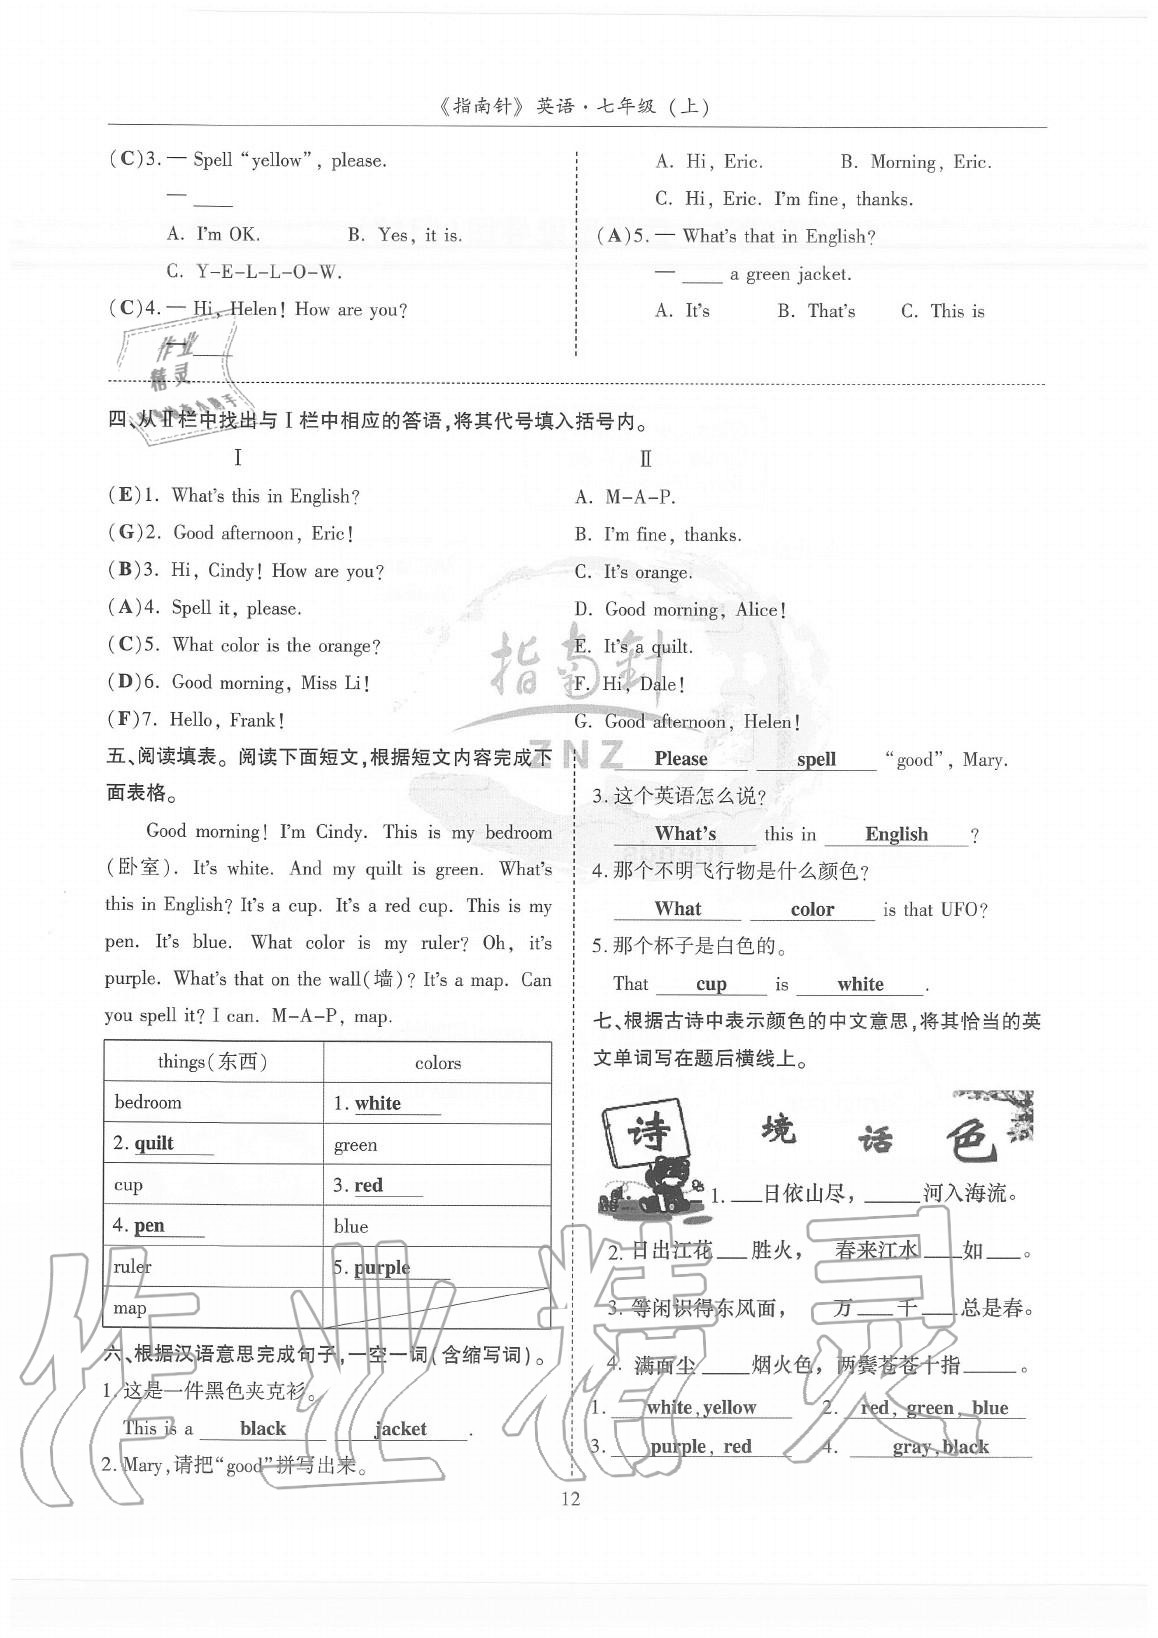 《指南针》英语·七年级(上)
(C)3. — Spell “yellow”, please.
— ____
A. I'm OK. B. Yes, it is.
C. Y-E-L-L-O-W.
(C)4. — Hi, Helen! How are you?
— ____
A. Hi, Eric. B. Morning, Eric.
C. Hi, Eric. I'm fine, thanks.
(A)5. — What's that in English?
— ____ a green jacket.
A. It's B. That's C. This is
四、从Ⅱ栏中找出与Ⅰ栏中相应的答语,将其代号填入括号内。
Ⅰ Ⅱ
(E)1. What's this in English? A. M-A-P.
(G)2. Good afternoon, Eric! B. I'm fine, thanks.
(B)3. Hi, Cindy! How are you? C. It's orange.
(A)4. Spell it, please. D. Good morning, Alice!
(C)5. What color is the orange? E. It's a quilt.
(D)6. Good morning, Miss Li! F. Hi, Dale!
(F)7. Hello, Frank! G. Good afternoon, Helen!
指南针
ZNZ
五、阅读填表。阅读下面短文,根据短文内容完成下
面表格。
Good morning! I'm Cindy. This is my bedroom
(卧室). It's white. And my quilt is green. What's
this in English? It's a cup. It's a red cup. This is my
pen. It's blue. What color is my ruler? Oh, it's
purple. What's that on the wall(墙)? It's a map. Can
you spell it? I can. M-A-P, map.
things(东西) colors
bedroom 1. white
2. quilt green
cup 3. red
4. pen blue
ruler 5. purple
map
六、根据汉语意思完成句子,一空一词(含缩写词)。
1. 这是一件黑色夹克衫。
This is a black jacket.
2. Mary,请把“good”拼写出来。
Please spell “good”, Mary.
3. 这个英语怎么说?
What's this in English?
4. 那个不明飞行物是什么颜色?
What color is that UFO?
5. 那个杯子是白色的。
That cup is white.
七、根据古诗中表示颜色的中文意思,将其恰当的英
文单词写在题后横线上。
诗 境 话 色
1. ___日依山尽, _____河入海流。
2. 日出江花___胜火, 春来江水____如___。
3. 等闲识得东风面, 万___千___总是春。
4. 满面尘____烟火色, 两鬓苍苍十指____。
1. white,yellow 2. red, green, blue
3. purple, red 4. gray,black
12
作业精灵